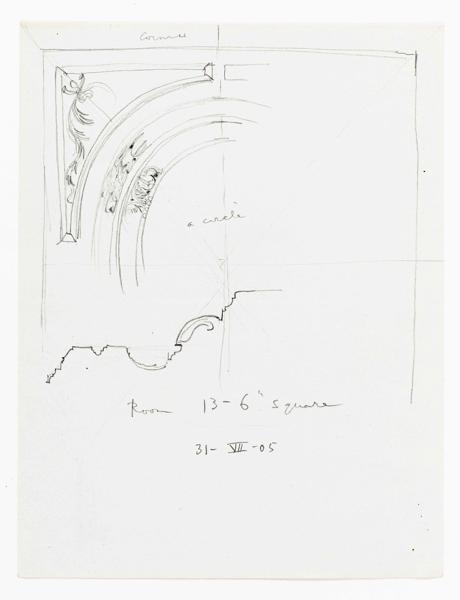 Cornice
a circle
Room 13-6" square
31-VII-05